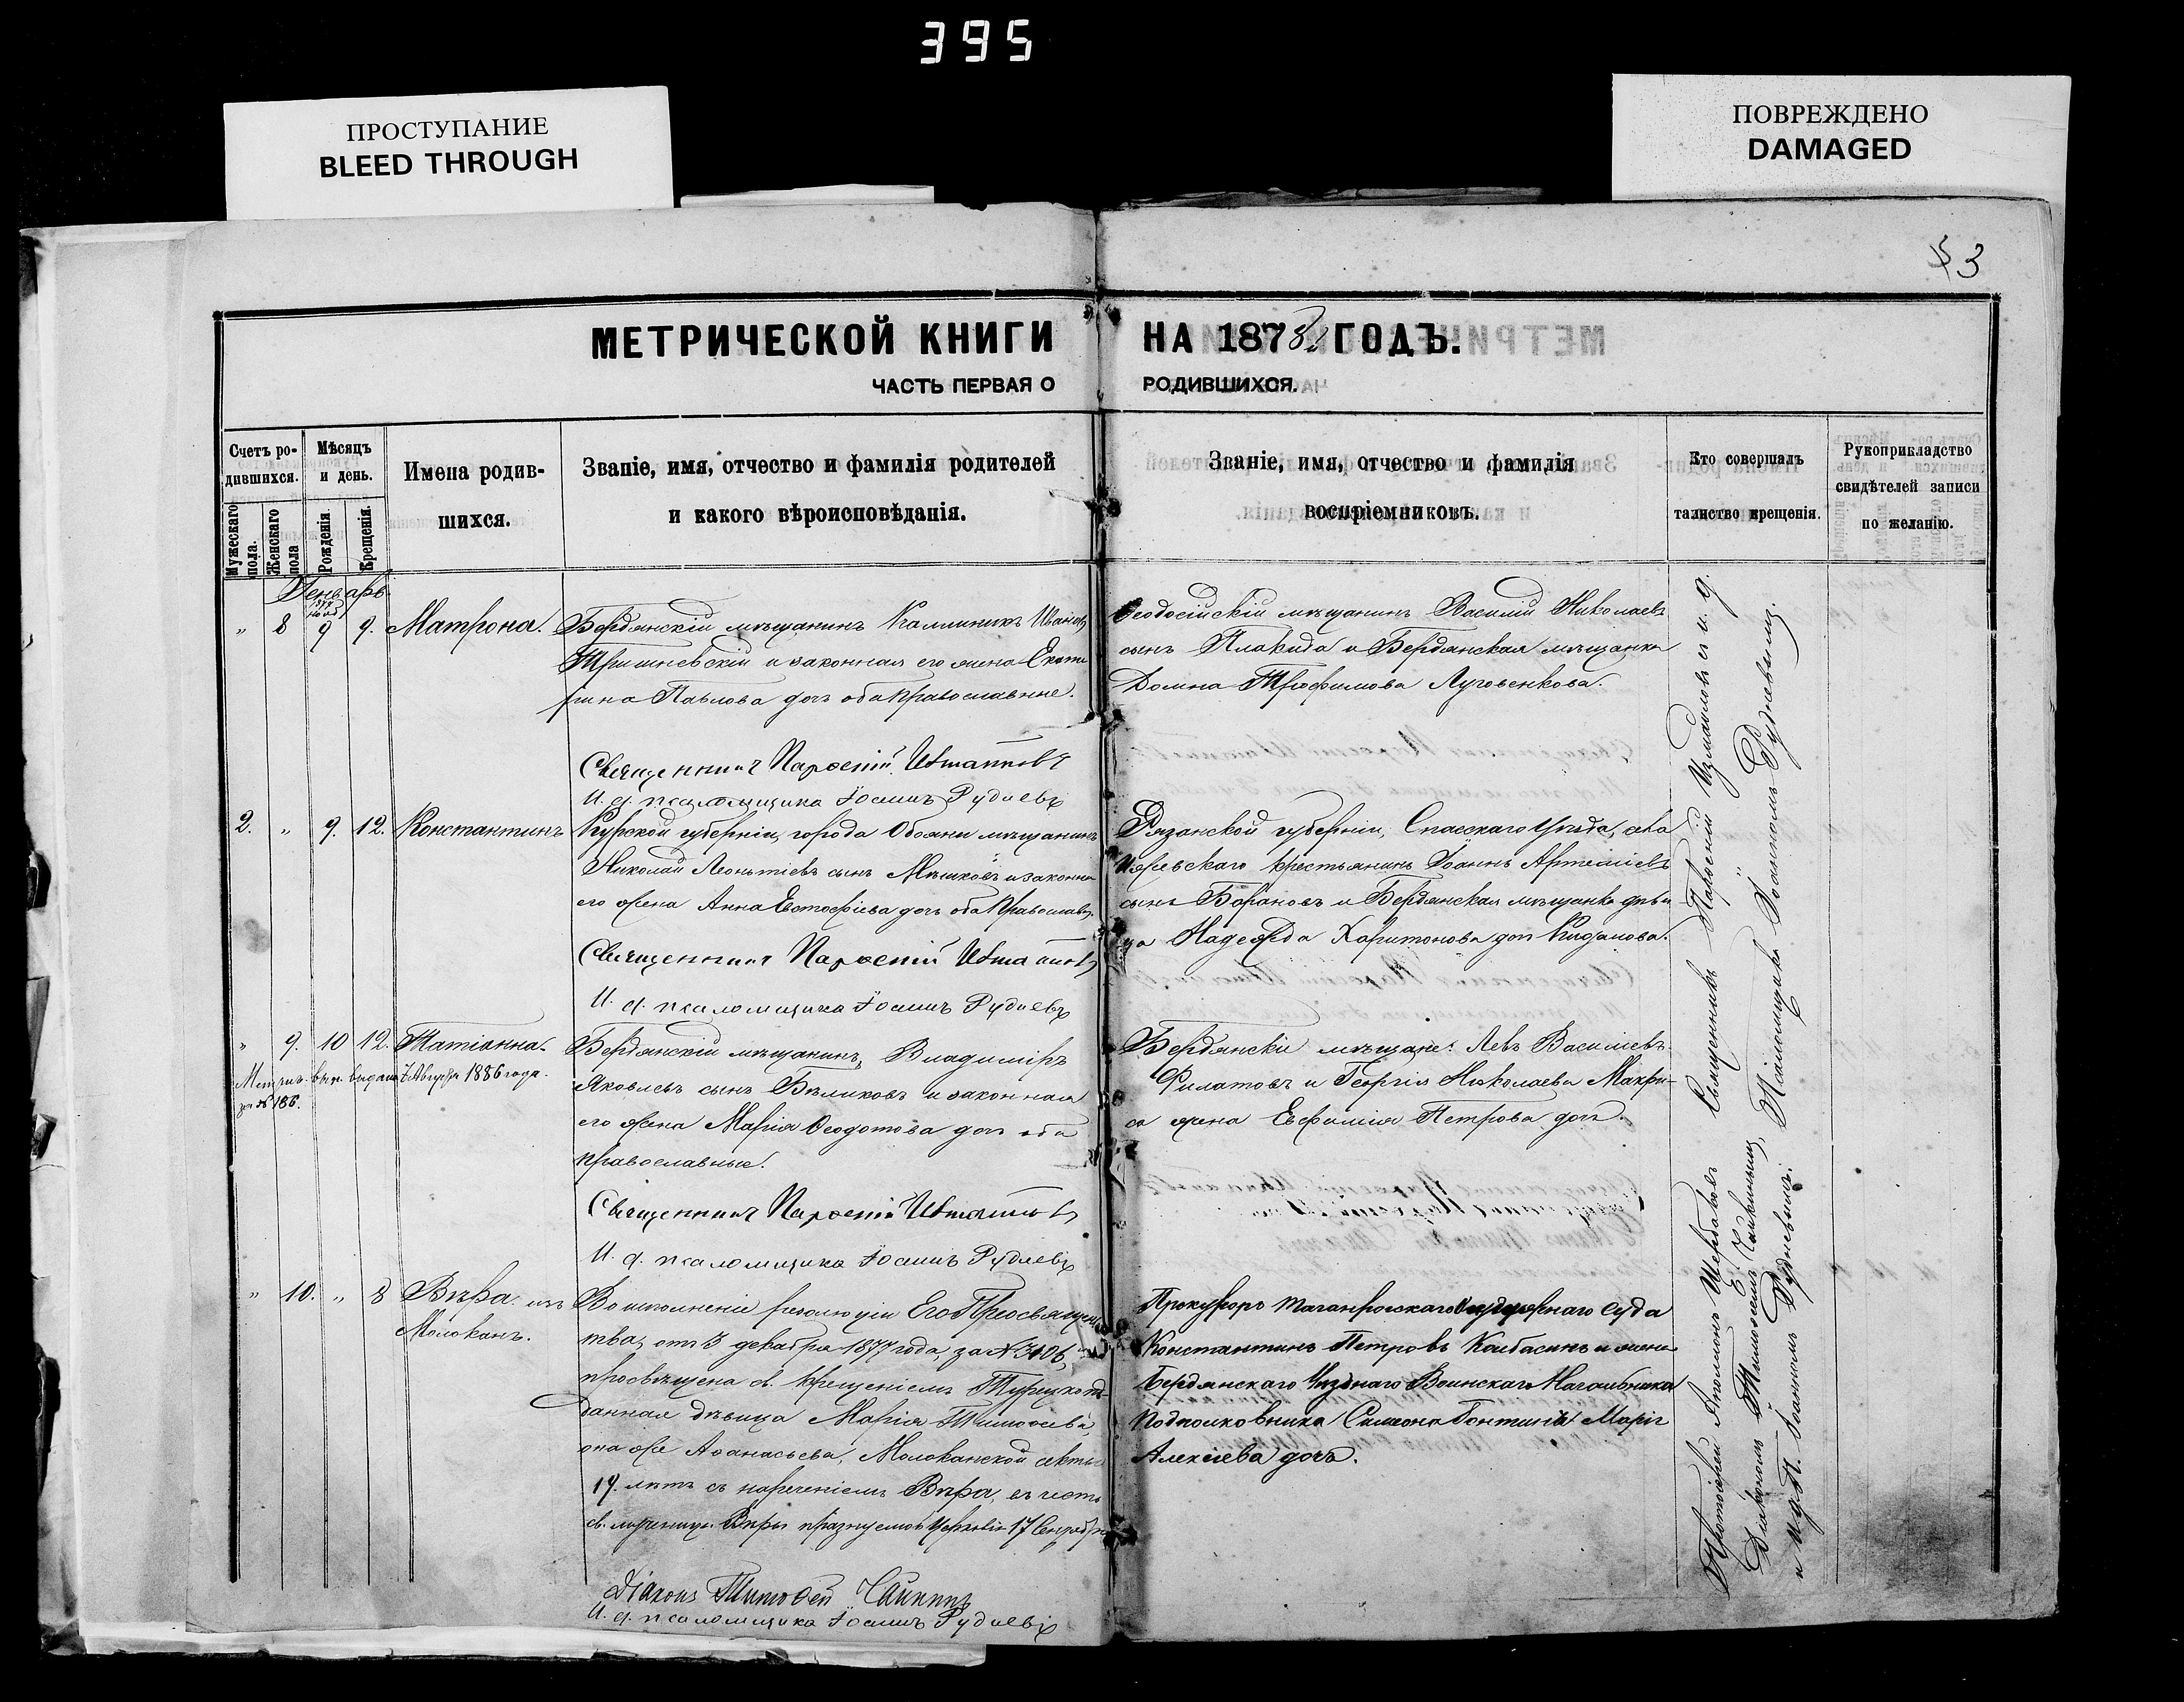 395
ПРОСТУПАНИЕ
BLEED THROUGH
ПОВРЕЖДЕНО
DAMAGED
3
МЕТРИЧЕСКОЙ КНИГИ НА 1878 ГОДЪ.
ЧАСТЬ ПЕРВАЯ О РОДИВШИХСЯ.
Счетъ ро-
дившихся.
Мужескаго
пола.
Женскаго
пола
Мѣсяцъ
и день.
Рожденія.
Крещенія.
Имена родив-
шихся.
Званіе, имя, отчество и фамилія родителей
и какого вѣроисповѣданія.
Званіе, имя, отчество и фамилія
воспріемниковъ.
Кто совершалъ
таинство крещенія.
Рукоприкладство
свидѣтелей записи
по желанію.
Генварь
" 8 9 9. Матрона.
Бердянскій мѣщанинъ Каллиникъ
и законная его жена Екате
рина Павлова дочь оба православные.
Ѳеодосійскій мѣщанинъ Василій Николаевъ
сынъ Плакида и Бердянская мѣщанка
Домна Трофимова Луговенкова.
Священникъ Парѳеній
И. д. псаломщика Іоаннъ Рудневъ
2. " 9. 12. Константинъ
Курской губерніи, города Обояни мѣщанинъ
Николай Леонтіевъ сынъ Мѣшковъ и законна
его жена Анна Евстафіева дочь оба православн.
Рязанской губерніи, Спасскаго уѣзда, села
Ижевскаго крестьянинъ Іоаннъ Артеміевъ
сынъ Барановъ и Бердянская мѣщанка дѣви
ца Надежда Харитонова дочь
Священникъ Парѳеній
И. д. псаломщика Іоаннъ Рудневъ
" 9. 10 12. Татіанна.
Метрич. вып. выдана 7 Августа 1886 года.
за № 186.
Бердянскій мѣщанинъ, Владиміръ
Яковлевъ сынъ Бѣликовъ и законная
его жена Марія Ѳеодотова дочь оба
православные.
Бердянскіе мѣщане: Левъ Василіевъ
Филатовъ и Георгія Николаева Макри-
са жена Евфимія Петрова дочь.
Священникъ Парѳеній
И. д. псаломщика Іоаннъ Рудневъ
" 10. " 8 Вѣра. изъ
Молоканъ.
Во исполненіе резолюціи Его Преосвящен
тва, отъ 3 декабря 1877 года, за №
просвѣщена св. крещеніемъ Турецко под-
данная дѣвица Марія Тимоѳеева,
она же Аѳанасьева, Молоканской секты
19. лѣтъ съ нареченіемъ Вѣра, въ честь
св. мученицы Вѣры празнуемой Церковію 17 Сентября
Прокуроръ Таганрогскаго Окружнаго Суда
Константинъ Петровъ Колбасинъ и жена
Бердянскаго Уѣзднаго Воинскаго Начальника
Подполковника Симеона Марія
Алексіева дочь.
Діаконъ Тимоѳей Чайкинъ
И. д. псаломщика Іоаннъ Рудневъ
Священникъ Парѳеній
съ и. д.
Псаломщика Іоанномъ Рудневымъ.
Протоіерей Аполлонъ Щербаковъ
Діакономъ Тимоѳеемъ Чайкинымъ,
и И.д.П. Іоанномъ Рудневымъ.